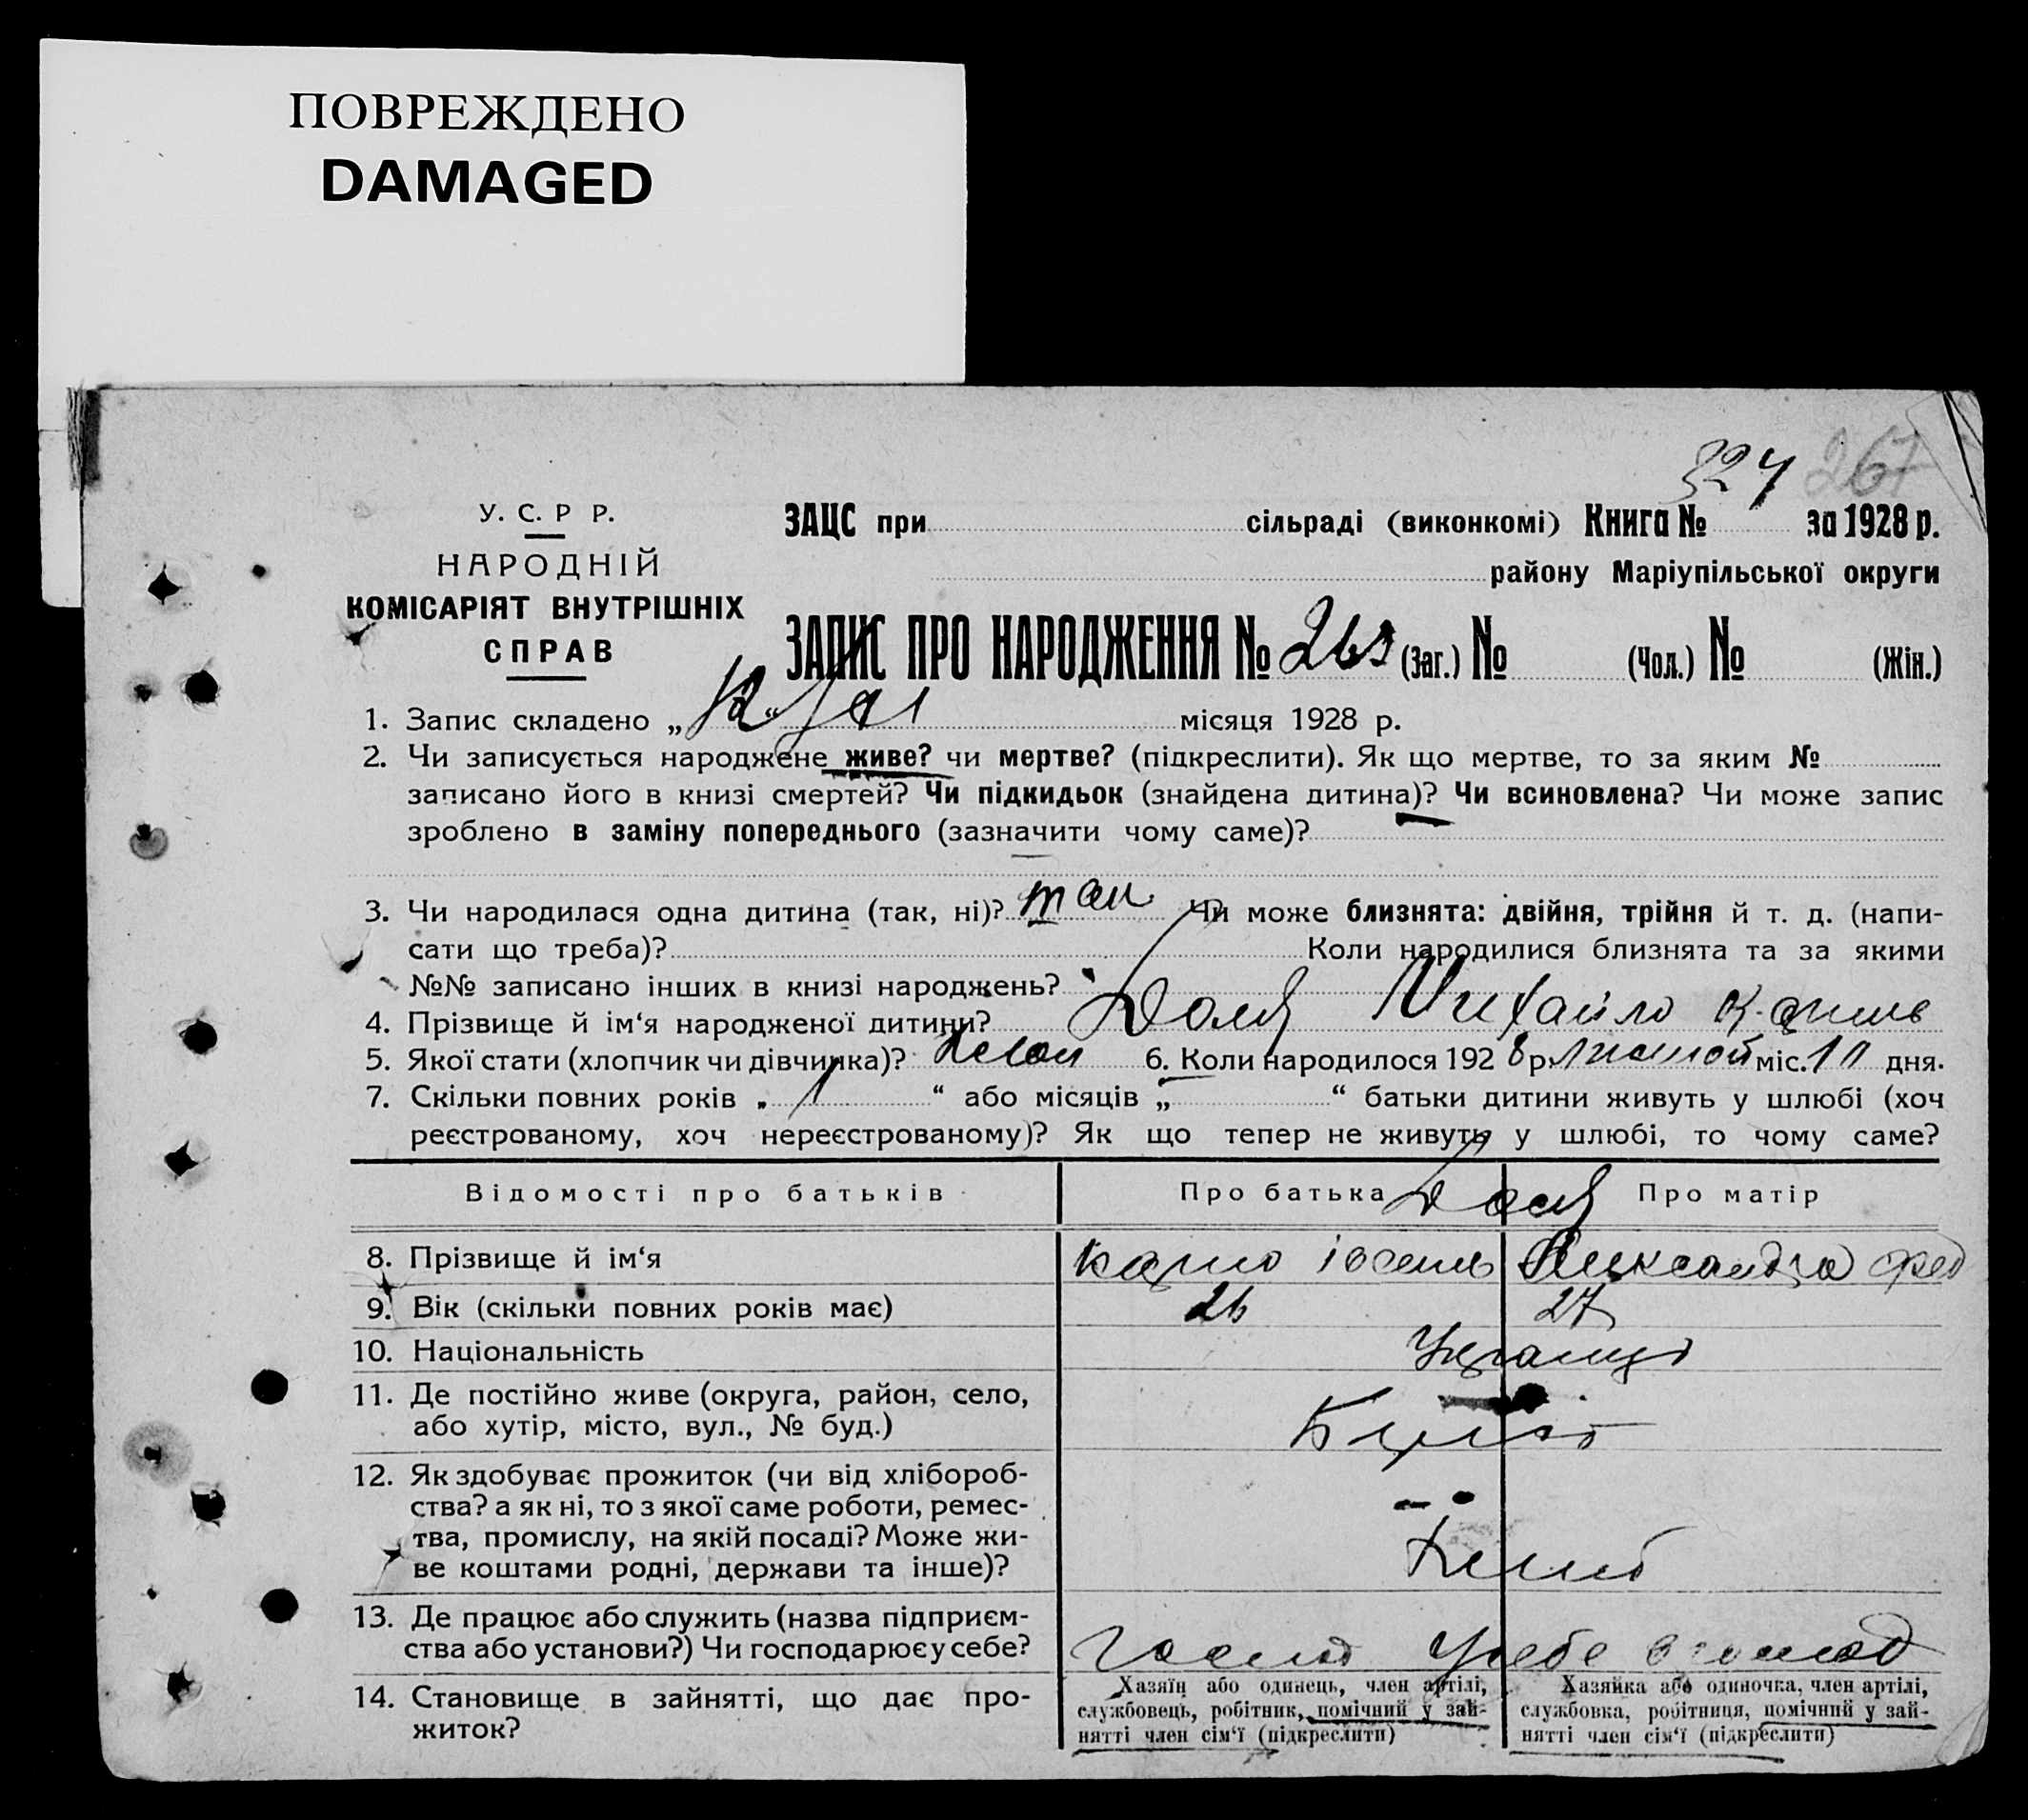 ПОВРЕЖДЕНО
DAMAGED
324 267
У. С. Р Р.
НАРОДНІЙ
КОМІСАРІЯТ ВНУТРІШНІХ
СПРАВ
ЗАЦС при сільраді (виконкомі) Книга № за 1928 р.
району Маріупільської округи
ЗАПИС ПРО НАРОДЖЕННЯ № 263 (Заг.) № (Чол.) № (Жін.)
1. Запис складено „ “ місяця 1928 р.
2. Чи записується народжене живе? чи мертве? (підкреслити). Як що мертве, то за яким №
записано його в книзі смертей? Чи підкидьок (знайдена дитина)? Чи всиновлена? Чи може запис
зроблено в заміну попереднього (зазначити чому саме)?
3. Чи народилася одна дитина (так, ні)? так Чи може близнята: двійня, трійня й т. д. (напи-
сати що треба)? Коли народилися близнята та за якими
№№ записано інших в книзі народжень?
4. Прізвище й ім‘я народженої дитини? Доля Михайло
5. Якої стати (хлопчик чи дівчинка)? 6. Коли народилося 192 8 р. міс. дня.
7. Скільки повних років „ 1 “ або місяців „ “ батьки дитини живуть у шлюбі (хоч
реєстрованому, хоч нереєстрованому)? Як що тепер не живуть у шлюбі, то чому саме?
Відомості про батьків Про батька Про матір
Доля
8. Прізвище й ім‘я Александра фед
9. Вік (скільки повних років має) 26 27
10. Національність Українці
11. Де постійно живе (округа, район, село,
або хутір, місто, вул., № буд.)
12. Як здобуває прожиток (чи від хлібороб-
ства? а як ні, то з якої саме роботи, ремес-
тва, промислу, на якій посаді? Може жи-
ве коштами родні, держави та інше)?
13. Де працює або служить (назва підприєм-
ства або установи?) Чи господарює у себе? у себе
14. Становище в зайнятті, що дає про-
житок?
Хазяїн або одинець, член артілі,
службовець, робітник, помічний у зай-
нятті член сім‘ї (підкреслити)
Хазяйка або одиночка, член артілі,
службовка, робітниця, помічний у зай-
нятті член сім‘ї (підкреслити)